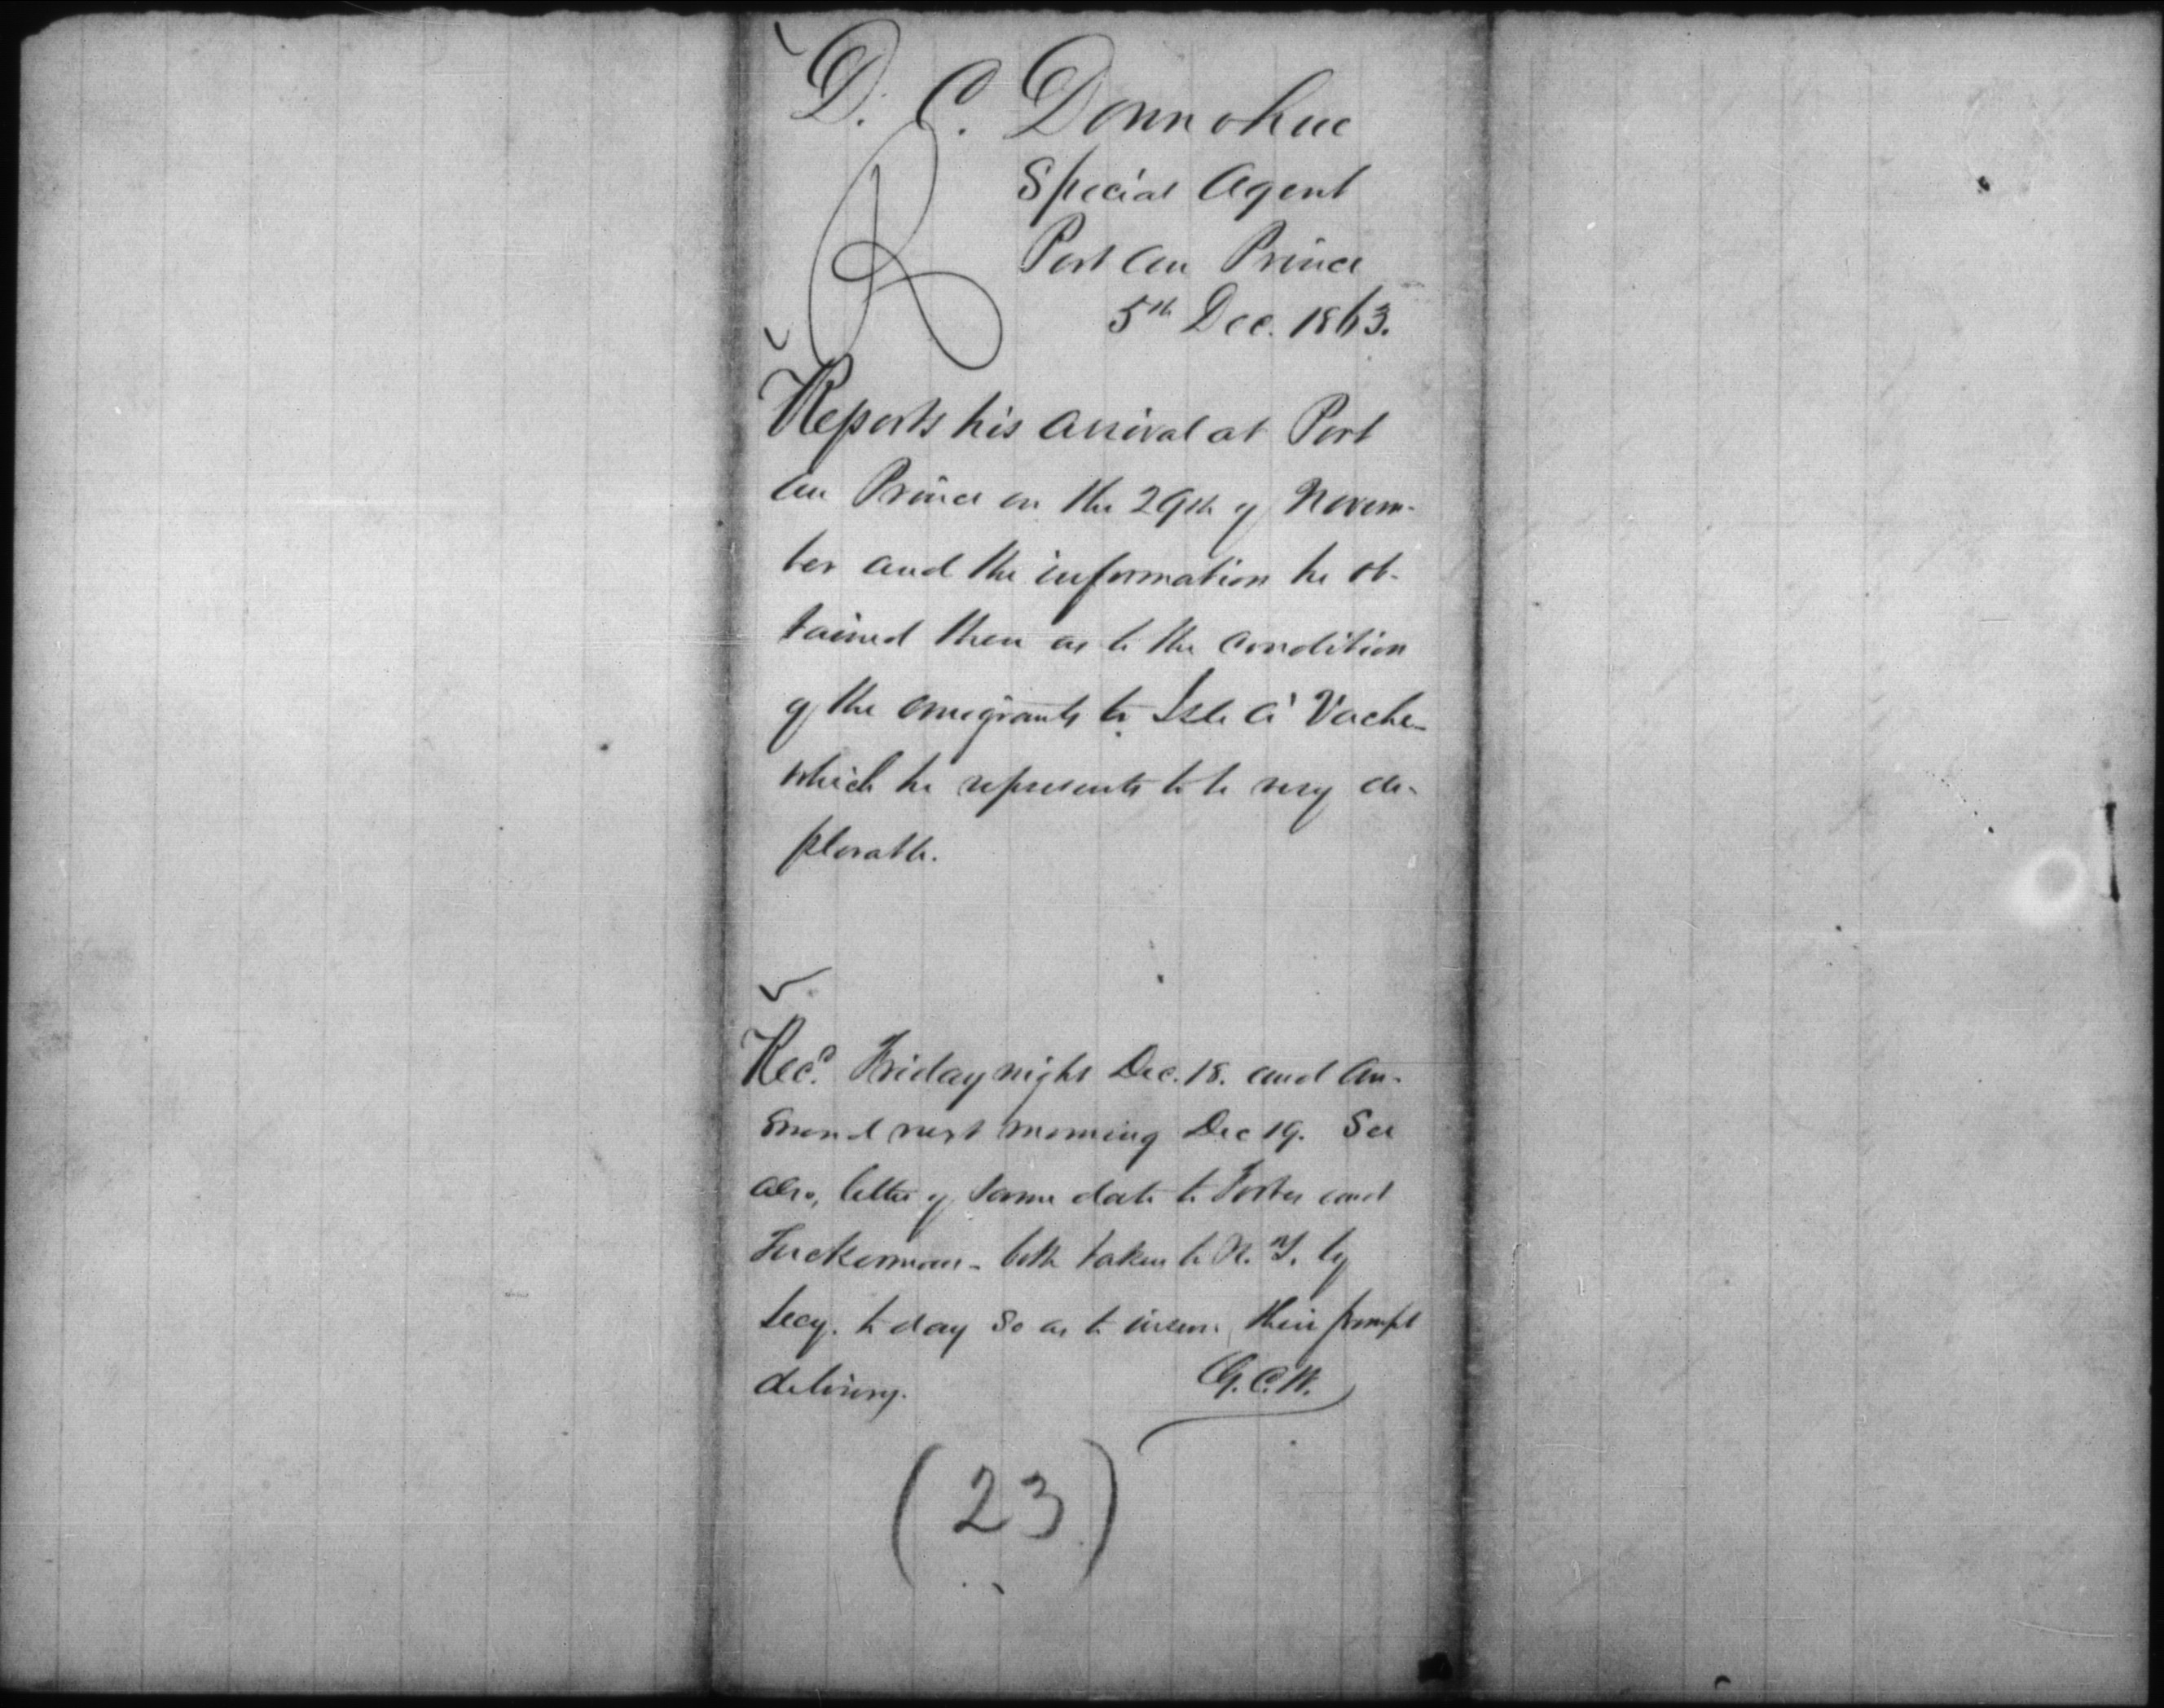 D. C. Donnohue
Special Agent
Port au Prince
5th Dec. 1863.
Reports his arrival at Port
au Prince on the 29th of Novem-
ber and the information he ob-
tained there as to the condition
of the emigrants to Isle a' Vache
which he represents to be very de-
plorable.
Recd. Friday night Dec. 18. and an-
swered next morning Dec 19. See
also, letter of same date to Forbes and
Tuckerman - both taken to N. Y. by
Secy. to day so as to insure their prompt
delivery.
G. C. W.
(23)